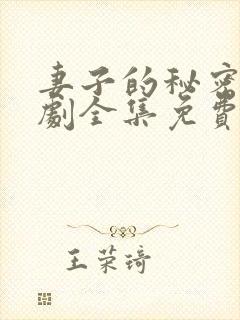 妻子的秘密
劇全集免費
王荣琦